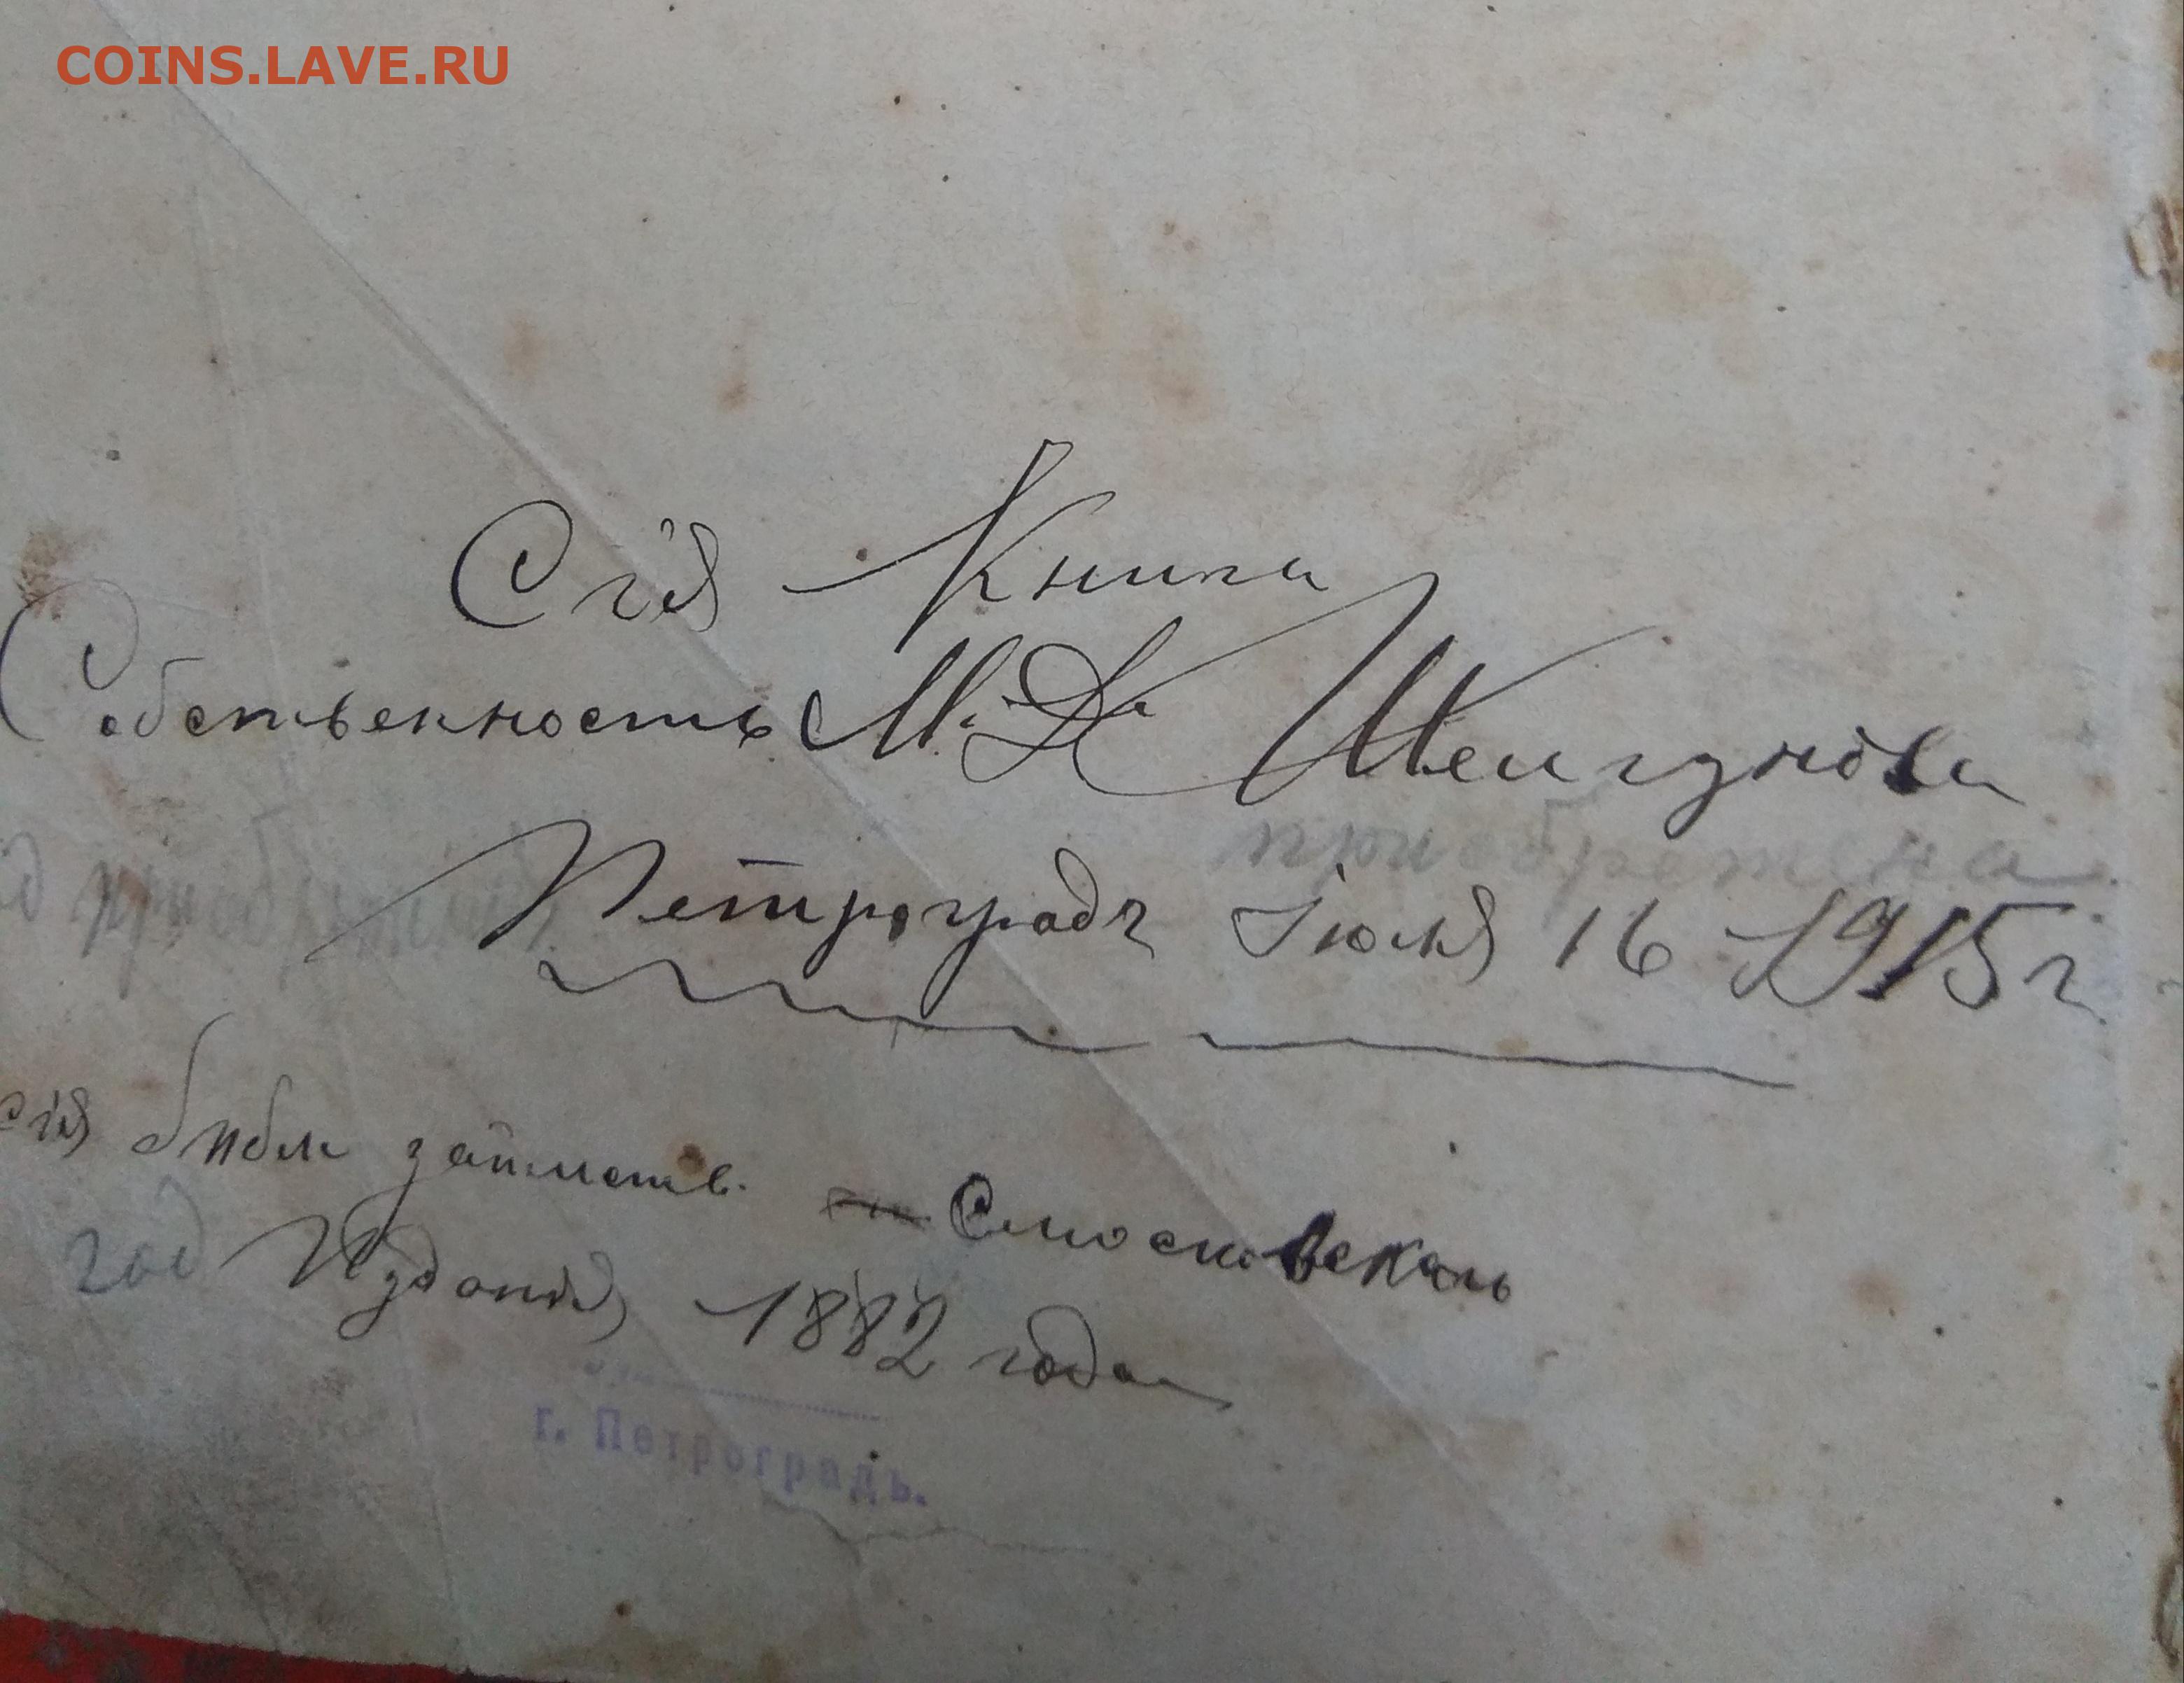 COINS.LAVE.RU
Сія Книга
Собственность М. Д. Мелгунова
приобретена
Петроградъ Іюля 16 1915 г
сія библ заимств.
год Изданія 1882 года
г. Петроградъ.